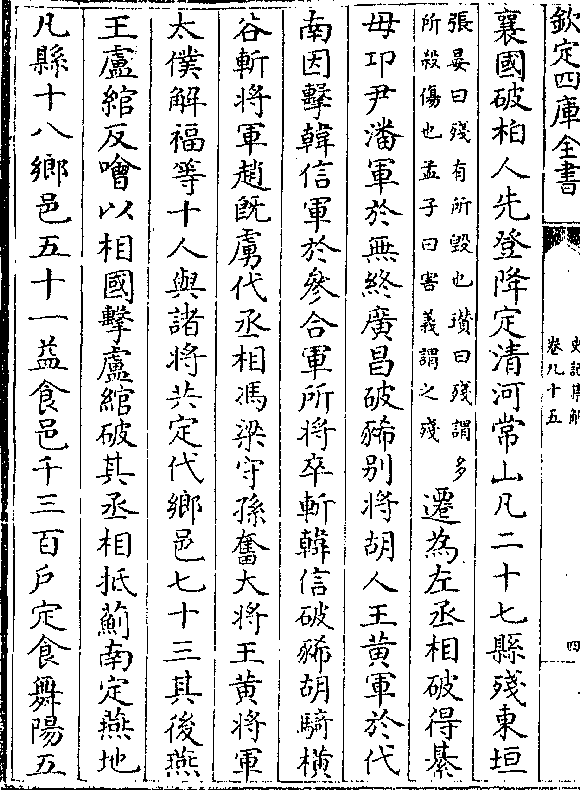 欽定四庫全書
史記集解
卷八十五
四
襄國破柏人先登降定清河常山凡二十七縣殘東垣
張晏曰殘有所毀也瓚曰殘謂多
所殺傷也孟子曰害義謂之殘
遷為左丞相破得綦
毋卭尹潘軍於無終廣昌破豨别將胡人王黄軍於代
南因擊韓信軍於參合軍所將卒斬韓信破豨胡騎横
谷斬將軍趙既虜代丞相馮梁守孫奮大將王黄將軍
太僕解福等十人與諸將共定代鄉邑七十三其後燕
王盧綰反噲以相國擊盧綰破其丞相抵薊南定燕地
凡縣十八鄉邑五十一益食邑千三百户定食舞陽五